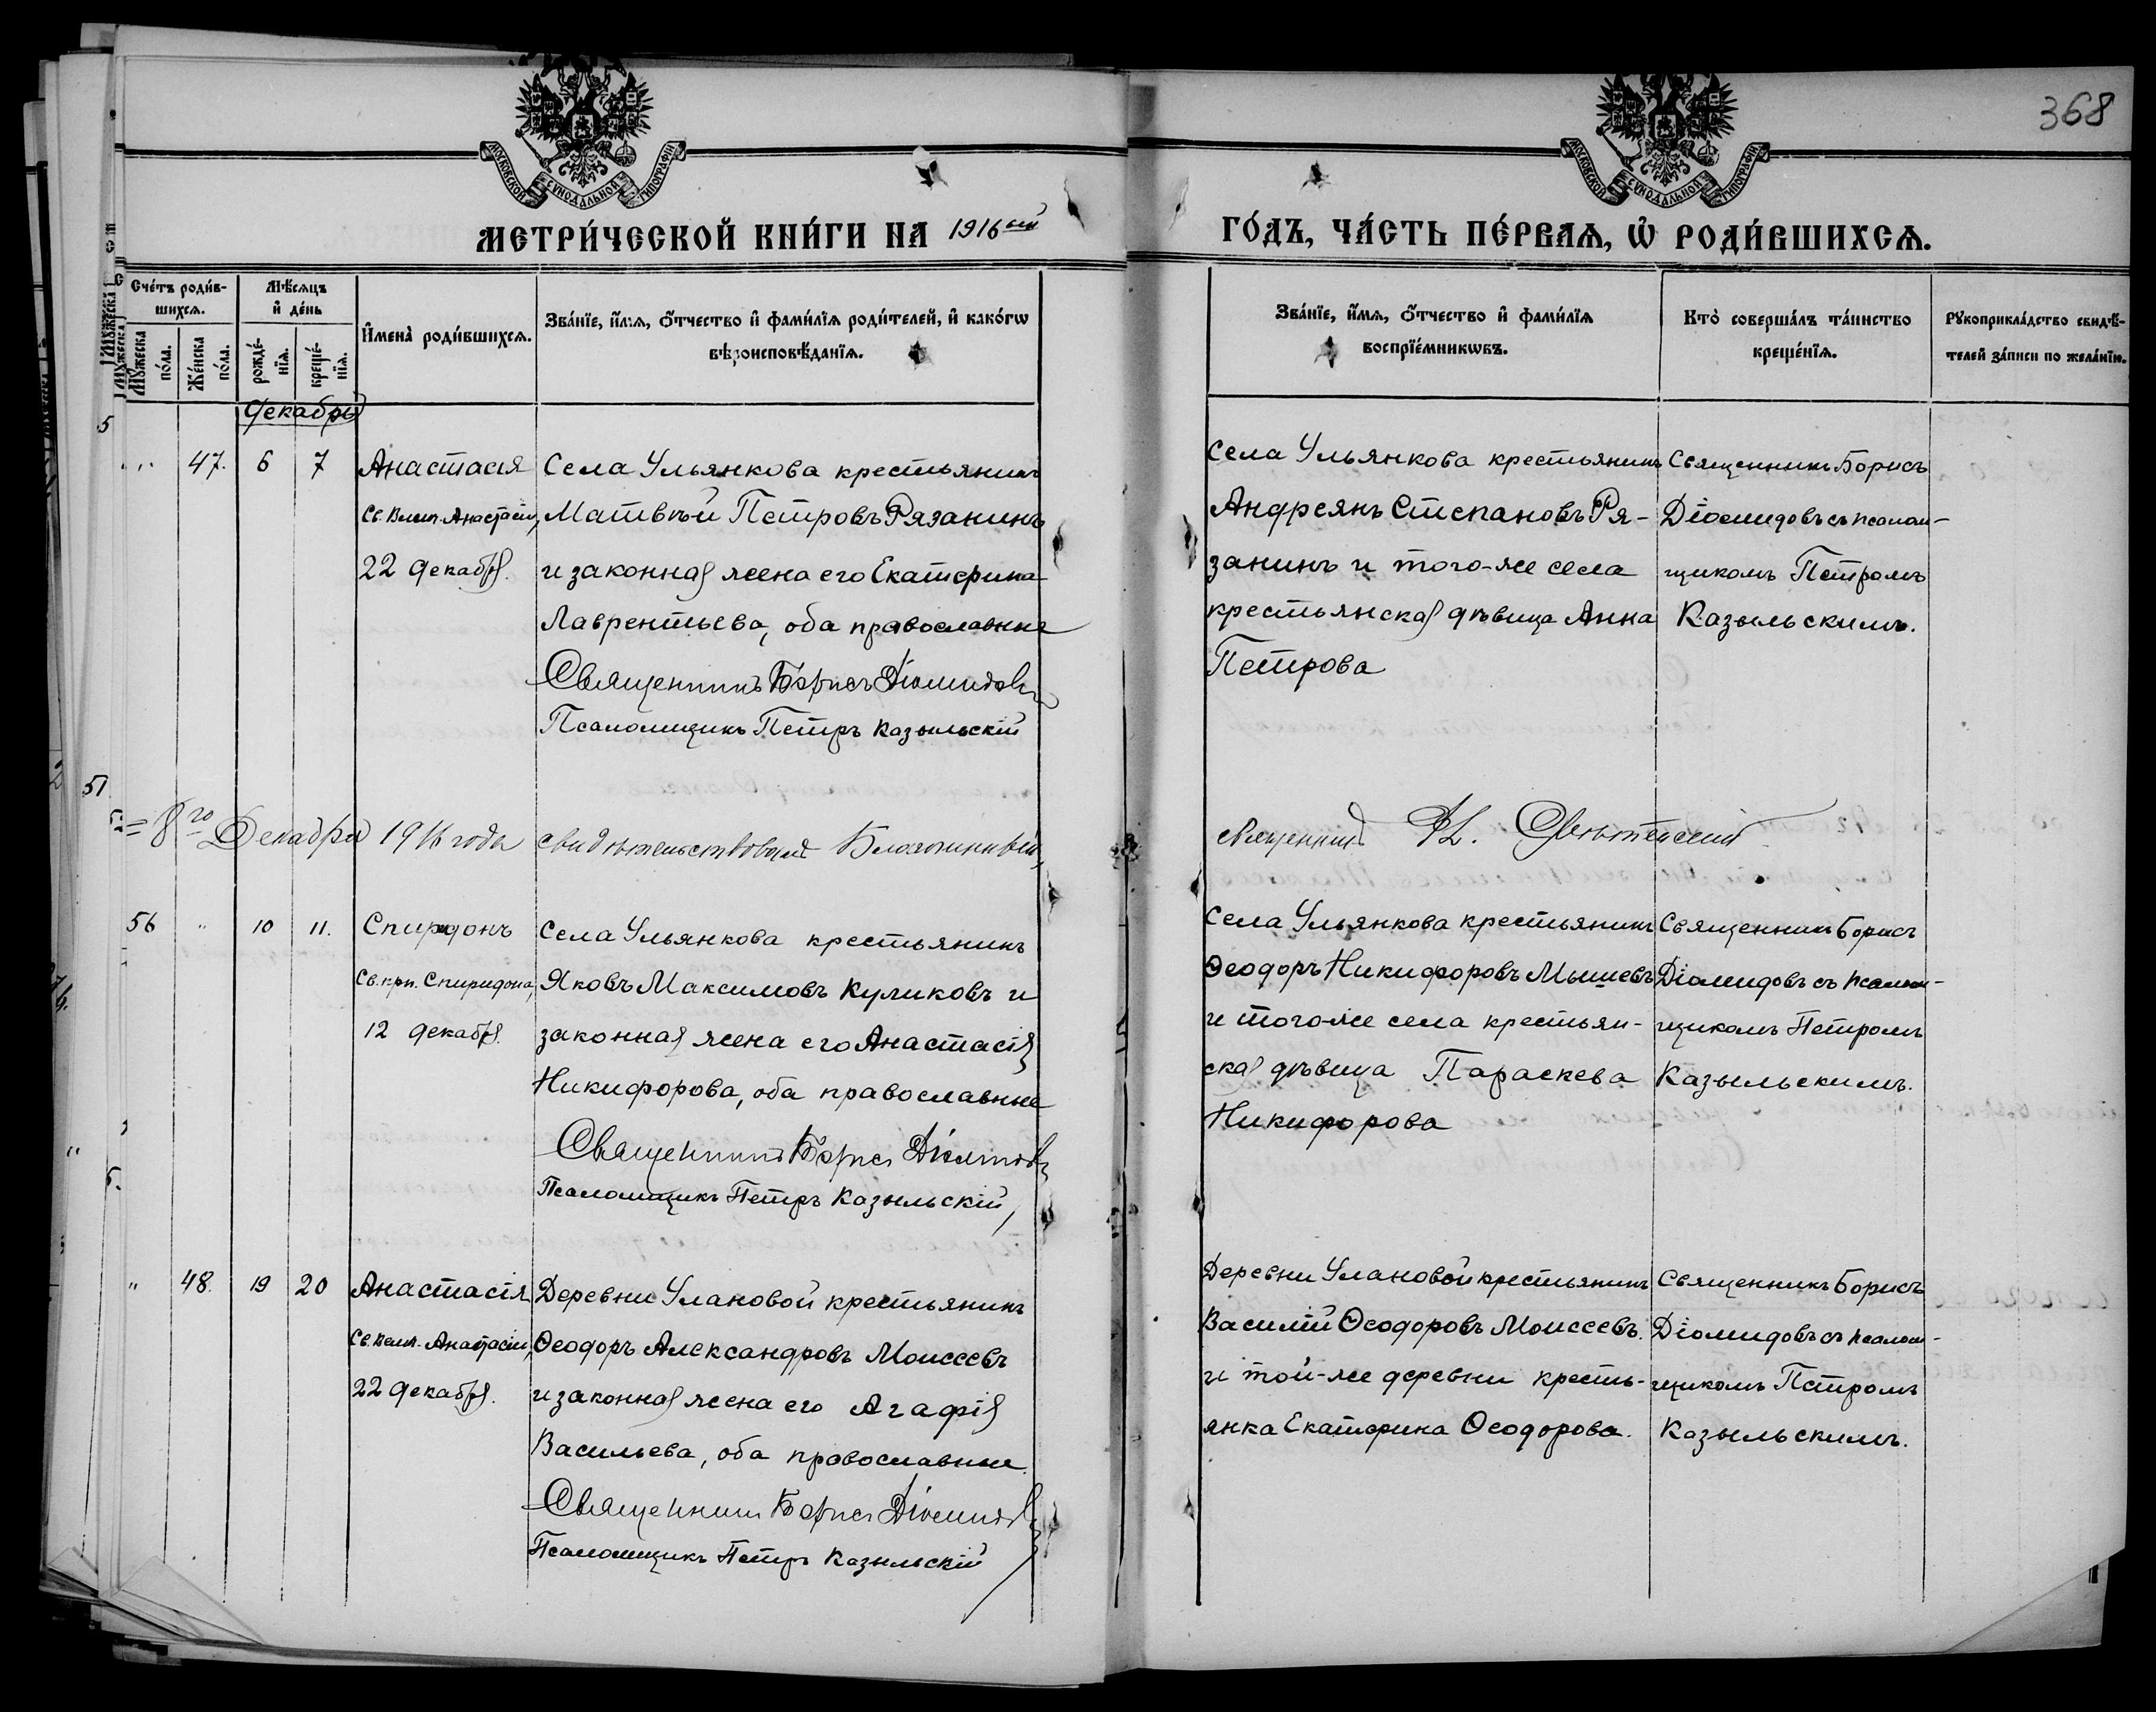 368
МОСКОВСКОЙ СѴНОДАЛЬНОЙ ТИПОГРАФІИ
МОСКОВСКОЙ СѴНОДАЛЬНОЙ ТИПОГРАФІИ
МЕТРИ́ЧЕСКОЙ КНИ́ГИ НА 1916ый ГО́ДЪ, ЧА́СТЬ ПЕ́РВАѦ, Ѡ҆ РОДИ́ВШИХСѦ.
Сче́тъ роди́в-
шихсѧ.
Мꙋ́жеска
по́ла.
Же́нска
по́ла.
Мѣ́сѧцъ
и҆ де́нь
рожде́-
нїѧ.
креще́-
нїѧ.
И҆мена̀ роди́вшихсѧ.
Зва́нїе, и҆́мѧ, ѻ҆́тчество и҆ фами́лїѧ роди́телей, и҆ како́гѡ
вѣроисповѣ́данїѧ.
Зва́нїе, и҆́мѧ, ѻ҆́тчество и҆ фами́лїѧ
воспрїе́мникѡвъ.
Кто̀ соверша́лъ та́инство
креще́нїѧ.
Рꙋкоприкла́дство свидѣ́-
телей за́писи по жела́нїю.
Декабрь
" 47. 6 7
Анастасія
Св. Влмч. Анастасіи,
22 декабря.
Села Ульянкова крестьянинъ
Матвѣй Петровъ Рязанинъ
и законная жена его Екатерина
Лаврентьева, оба православные
Священникъ Борисъ Діомидовъ
Псаломщикъ Петръ Казыльскій
Села Ульянкова крестьянинъ
Андреянъ Степановъ Ря-
занинъ и того-же села
крестьянская дѣвица Анна
Петрова
Священникъ Борисъ
Діомидовъ съ псалом-
щикомъ Петромъ
Казыльскимъ.
8го Декабря 1916 года свидѣтельствовалъ Благочинный,
священникъ
56 " 10 11.
Спиридонъ
Св. прп. Спиридона,
12 декабря.
Села Ульянкова крестьянинъ
Яковъ Максимовъ Куликовъ и
законная жена его Анастасія
Никифорова, оба православные
Священникъ Борисъ Діомидовъ
Псаломщикъ Петръ Казыльскій,
Села Ульянкова крестьянинъ
Ѳеодоръ Никифоровъ Мышевъ
и того-же села крестьян-
ская дѣвица Параскева
Никифорова
Священникъ Борисъ
Діомидовъ съ псалом-
щикомъ Петромъ
Казыльскимъ.
" 48. 19 20
Анастасія
Св. Велм. Анастасіи,
22 декабря.
Деревни Улановой крестьянинъ
Ѳеодоръ Александровъ Моисеевъ
и законная жена его Агафія
Васильева, оба православные.
Священникъ Борисъ Діомидовъ
Псаломщикъ Петръ Казыльскій
Деревни Улановой крестьянинъ
Василій Ѳеодоровъ Моисеевъ.
и той-же деревни кресть-
янка Екатерина Ѳеодорова.
Священникъ Борисъ
Діомидовъ съ псалом-
щикомъ Петромъ
Казыльскимъ.